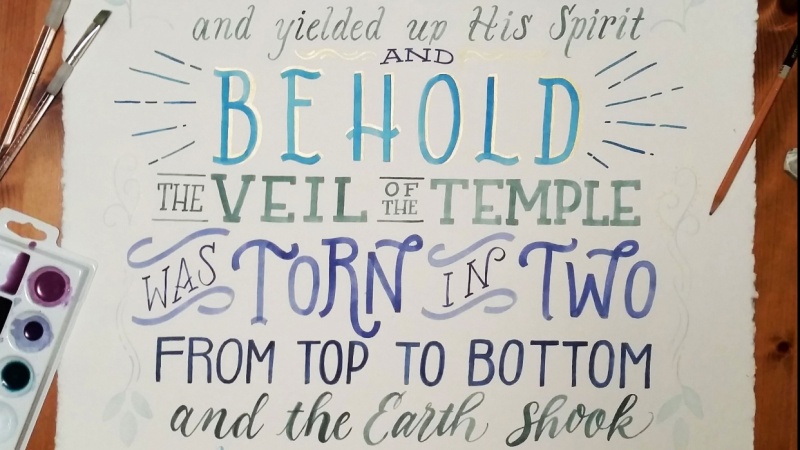 and yielded up His Spirit
AND
BEHOLD
THE VEIL OF THE TEMPLE
WAS TORN IN TWO
FROM TOP TO BOTTOM
and the Earth shook